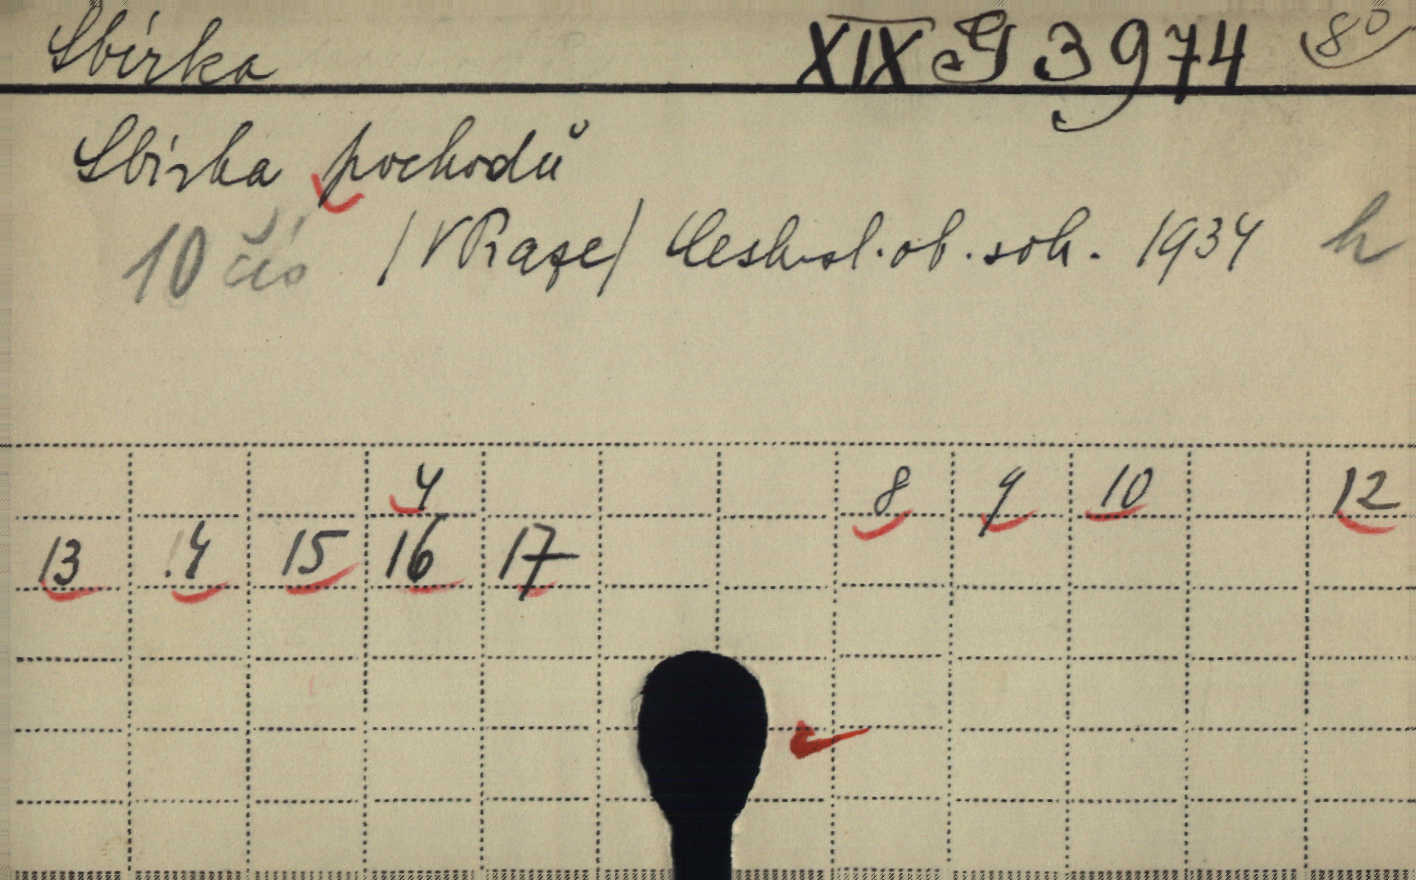 Sbírka XIX G 3974 8°
Sbírka pochodů
10 čís /V Praze/ Českosl. ob. sok. 1934 h
4 8 9 10 12
13 14 15 16 17